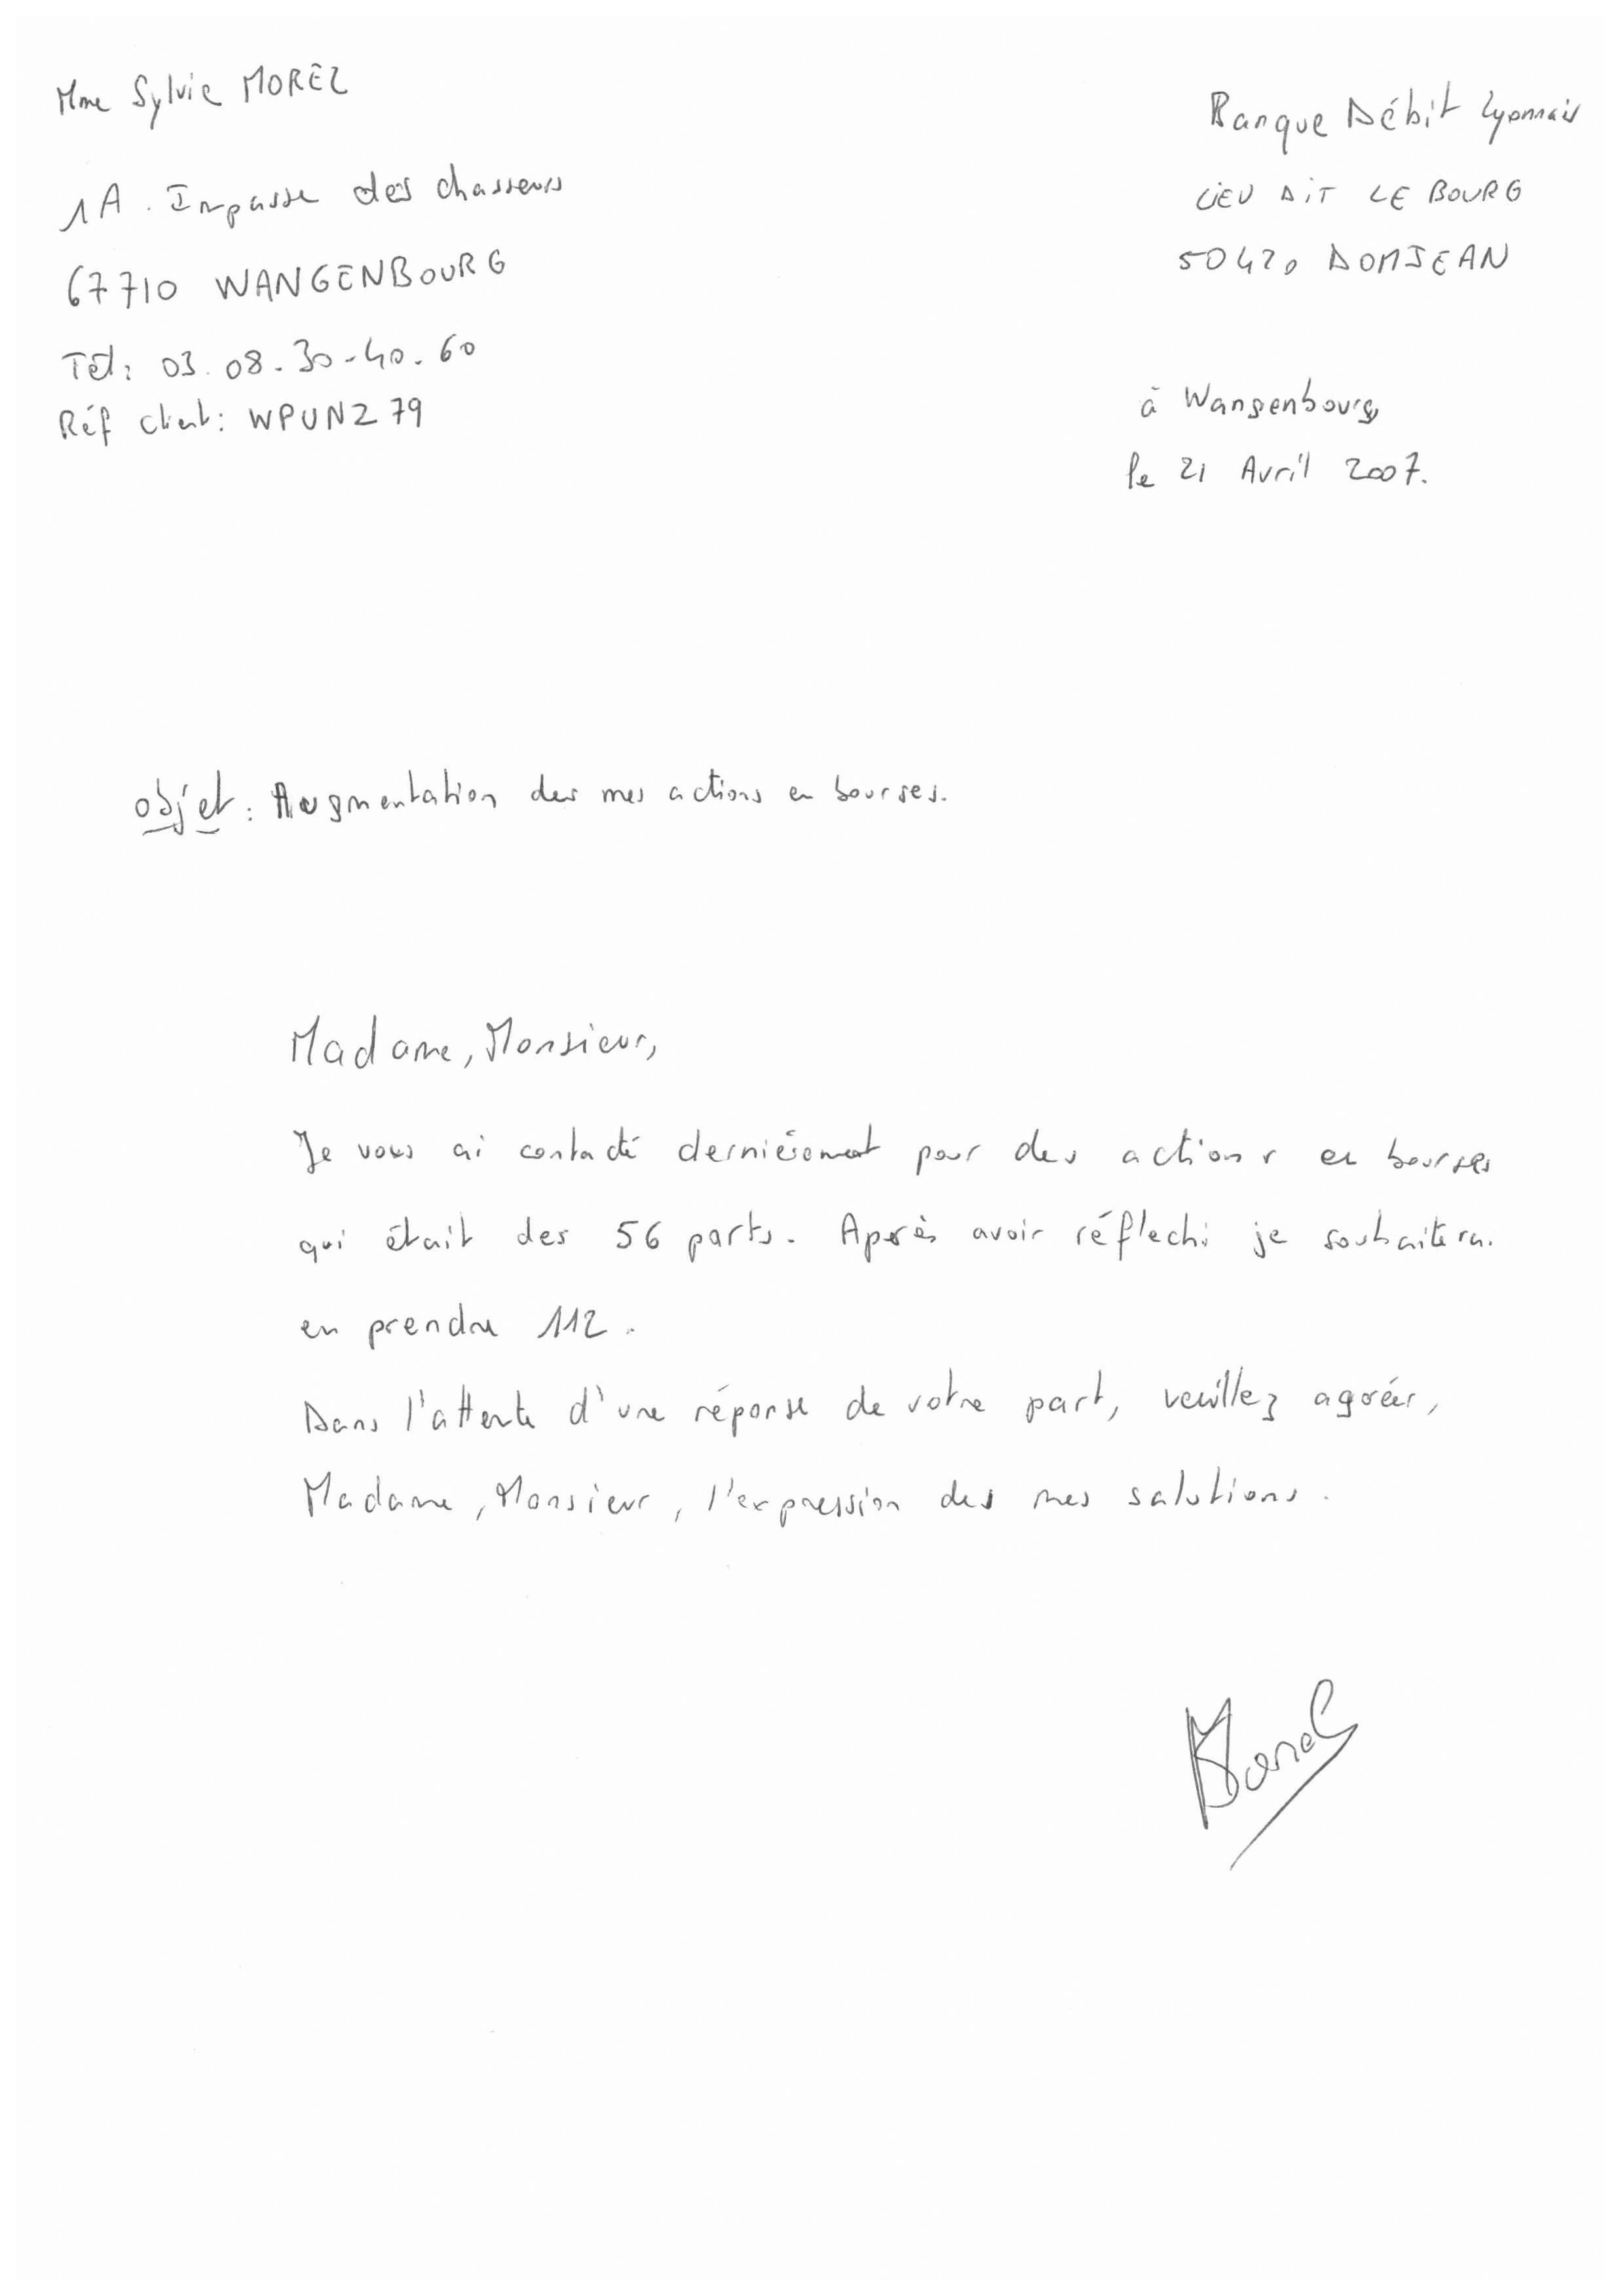 Mme Sylvie MOREL
1A. Impasse des chasseurs
67710 WANGENBOURG
Tél: 03.08.30-40.60
Réf client: WPUNZ79
Banque Débit Lyonnais
LIEU DIT LE BOURG
50420 DOMJEAN
à Wangenbourg
le 21 Avril 2007.
objet: Augmentation des mes actions en bourses.
Madame, Monsieur,
Je vous ai contacté dernièrement pour des actions en bourses
qui était des 56 parts. Après avoir réflechi je souhaiterai
en prendre 112.
Dans l'attente d'une réponse de votre part, veuillez agréer,
Madame, Monsieur, l'expression des mes salutions.
Morel